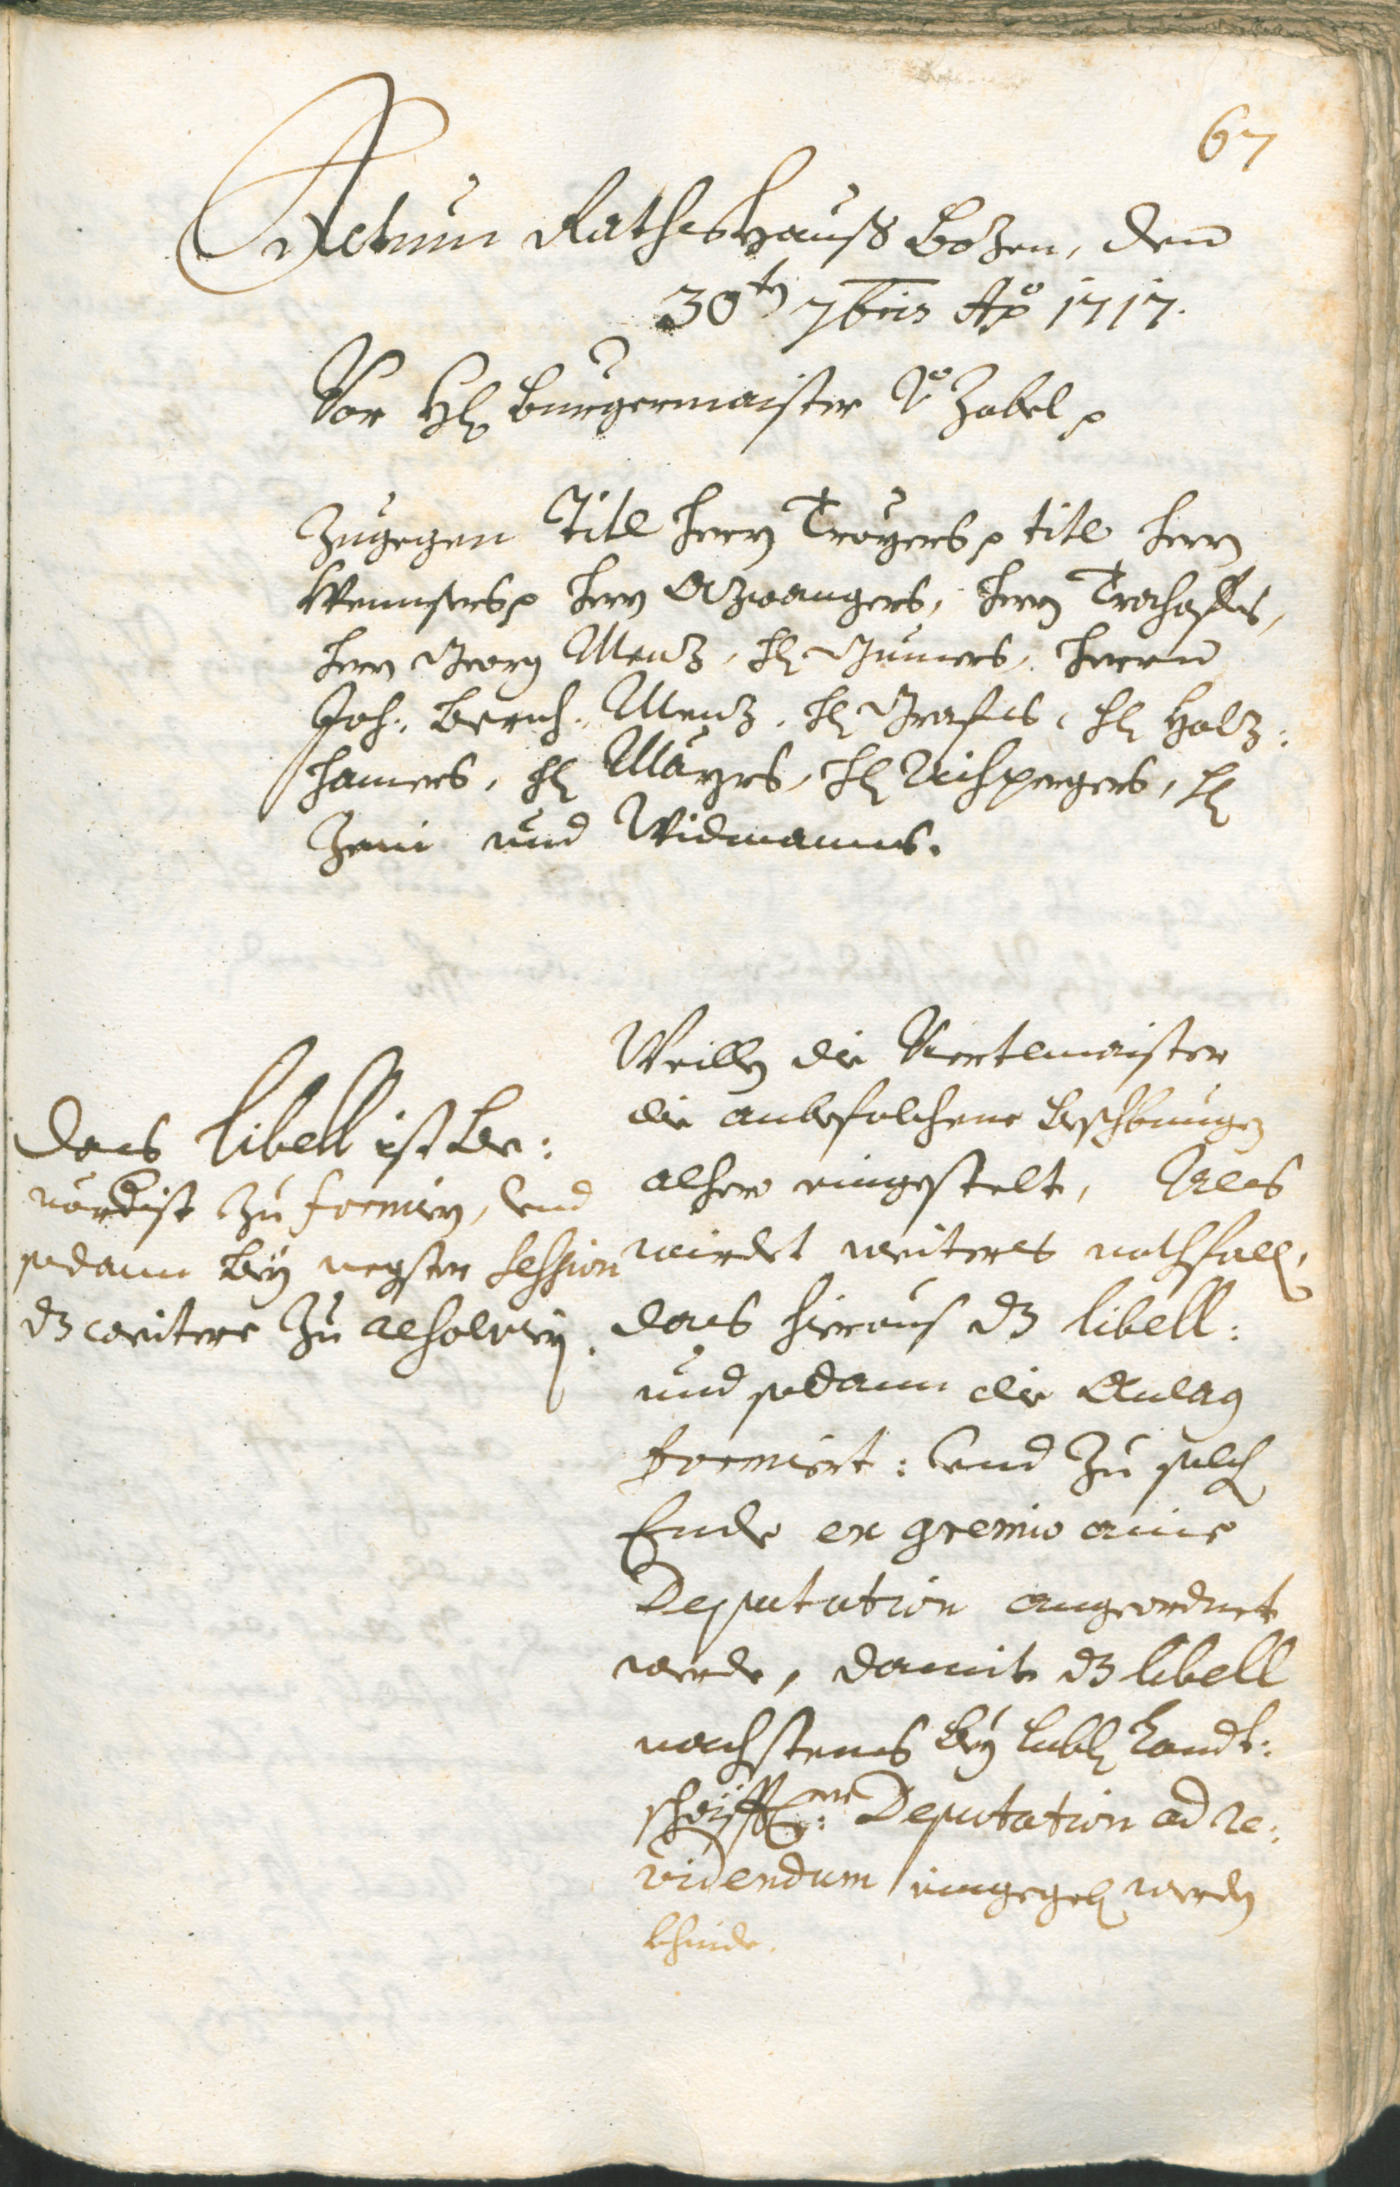 67
Actum Rathshauß Bozen, den
30t 7bris Ao 1717.
Vor H Burgermaister Zabel p
Zugegen Titl herrn Troyers p titl herrn
Wennsers p herrn Azwangers, herrn Trochasts,
herrn Georg Menz, h Gumers, herrn
Joh: Bernh: Menz, h Grafns, h Holz:
hamers, h Mayrs, h Aichpergers, h
Zeni und Widmanns.
Das libell ist be:
nordist zu formiern, und
sodann bey negster session
dz weitere zu resolviern.
Weilln die Viertlmaister
die anbefolchene beschbungen
alhero eingestelt, Als
wirdet weiters nothfall,
das hieraus dz libell:
und sodann die Anlag
formiert: und zu solch
Ende ex gremio aine
Deputation angeordnet
werde, damit dz libell
nachstens bey lobl Landt:
schäfftne Deputation ad re:
videndum eingegeben werden
khinde.